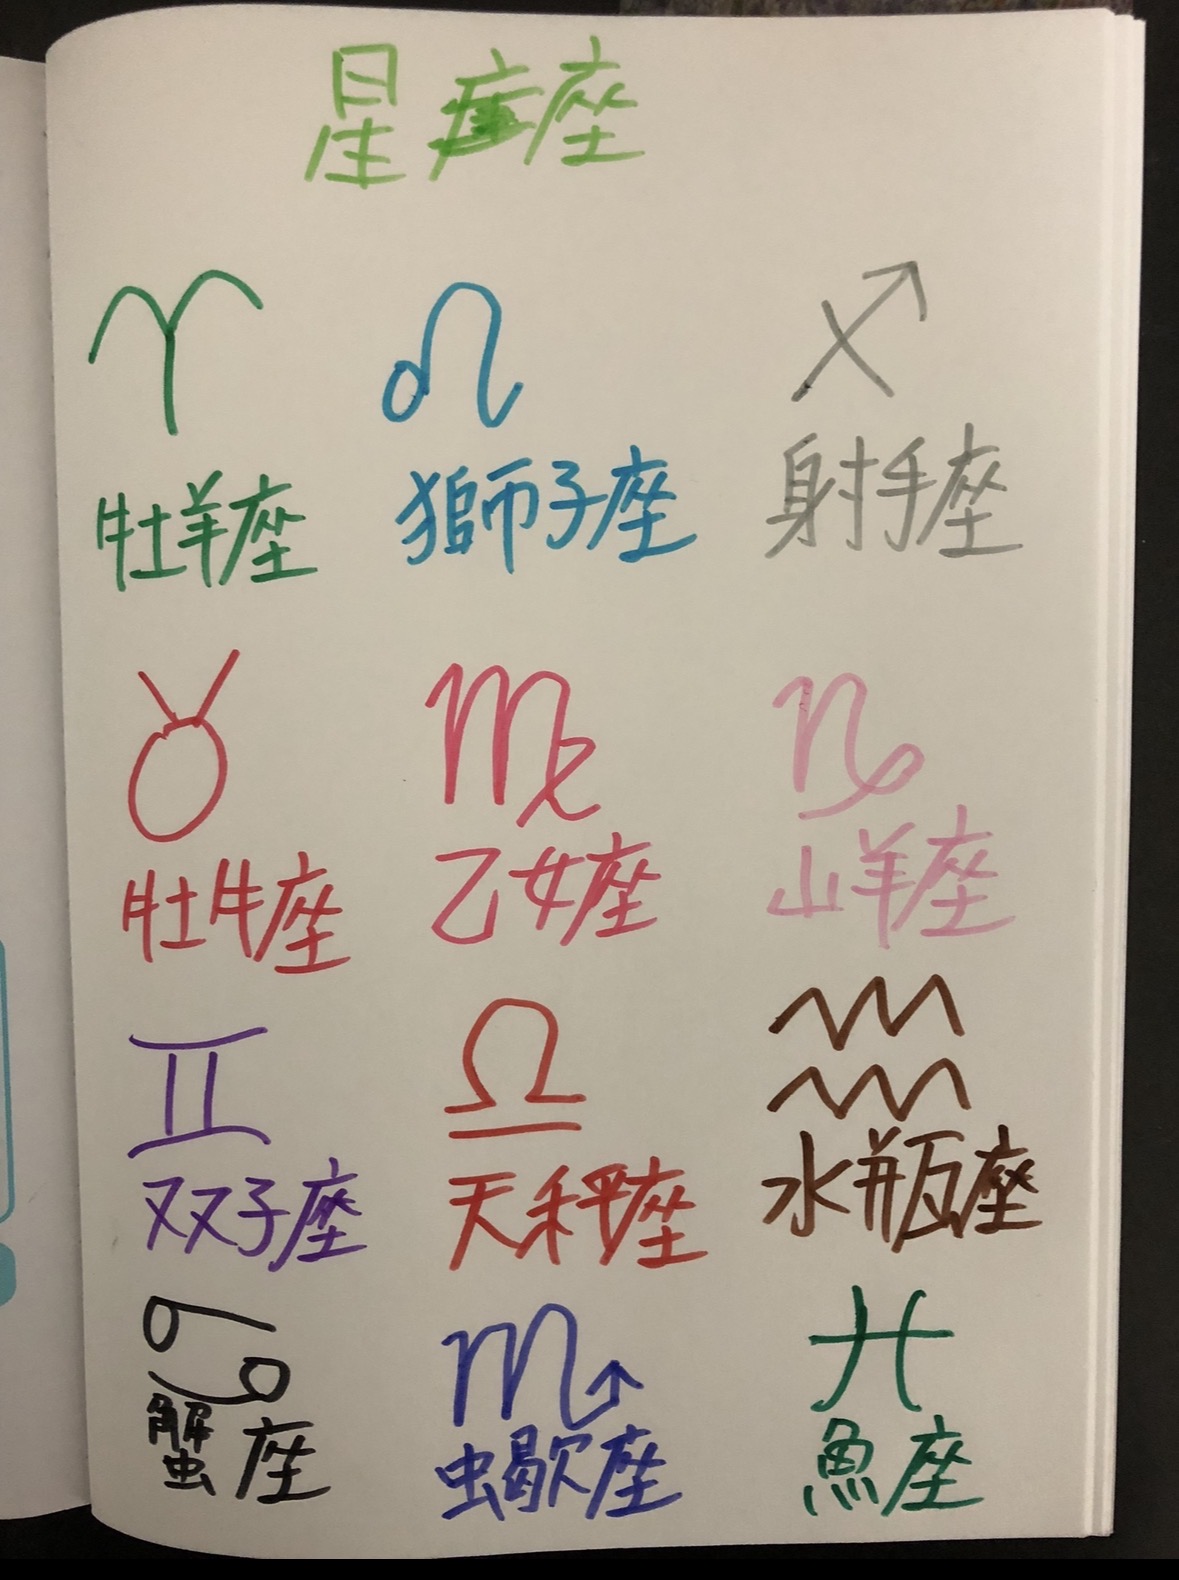 星座
牡羊座
牡牛座
双子座
蟹座
獅子座
乙女座
天秤座
蠍座
射手座
山羊座
水瓶座
魚座